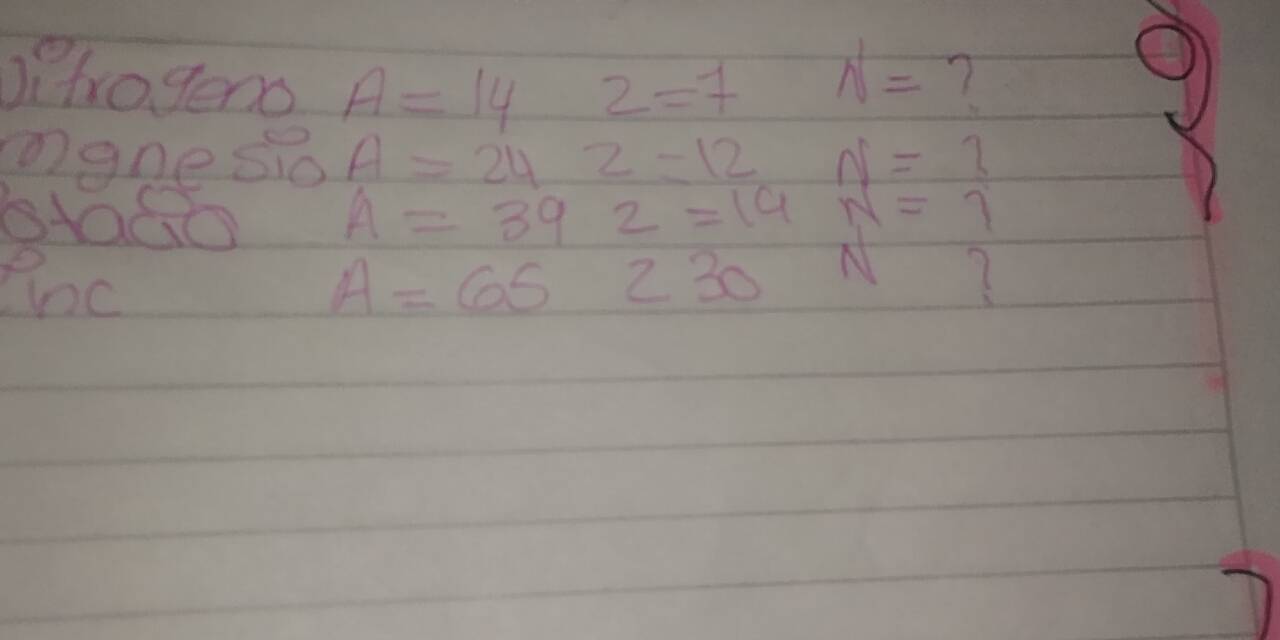 Nitrogeno A = 14 Z = 7 N = ?
mgnesio A = 24 Z = 12 N = ?
A = 39 Z = 19 N = ?
inc A = 65 Z 30 N ?